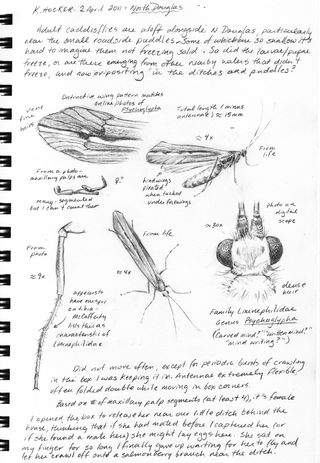 K. HOCKER. 2 April 2011 · North Douglas
Adult caddisflies are aloft alongside N Douglas particularly
near the small roadside puddles. Some of which are so shallow it's
hard to imagine them not freezing solid. So did the larvae/pupae
freeze, or are these emerging from other nearby waters that didn't
freeze, and now ovipositing in the ditches and puddles?
Distinctive wing pattern matches
online photos of
Psychoglypha
very
fine
hairs
Total length (minus
antennae) ≈ 15mm
≈ 4x
From
life
From a photo -
maxillary palps are
many-segmented
but I can't count them
♀?
hindwings
pleated
when tucked
under forewings
photo on
digital
scope
≈30x
From
photo
≈ 9x
From life
≈4x
appears to
have one spur
on tibia-
characteristic of
Limnephilidae
dense
hair
Family Limnephilidae
Genus Psychoglypha
("carved mind?" "written mind?"
"mind writing?")
Did not move often, except for periodic bursts of crawling
in the box I was keeping it in. Antennae extremely flexible,
often folded double while moving in box corners.
Based on # of maxillary palp segments (at least 4), it's female
I opened the box to release her near our little ditch behind the
house, thinking that if she had mated before I captured her (or
if she found a mate here) she might lay eggs here. She sat on
my finger for so long I finally gave up waiting for her to fly and
let her crawl off onto a salmonberry branch near the ditch.